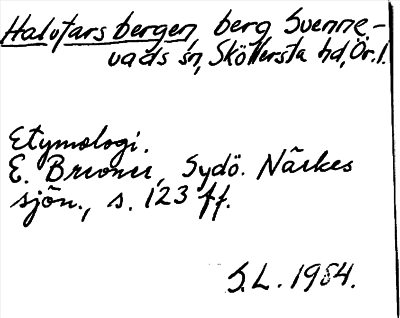 Halvtarsbergen, berg Svenne-
vads sn, Sköllersta hd, Ör. l.
Etymologi.
E. Brevner, Sydö. Närkes
sjön., s. 123 ff.
S.L. 1984.